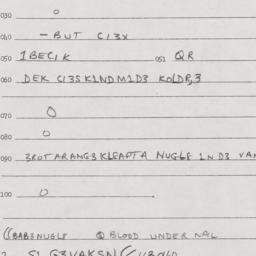 030 0
040 - BUT CI3X
050 1BECIK 051 QR
060 DEK CI3SKINDM1D3 KOLDP,3
070 0
080 0
090 3ROTARANG3KLEAPTA NUGLE 1ND3 VAN
100 0
((BAB3NUGLE @ BLOOD UNDER NAIL